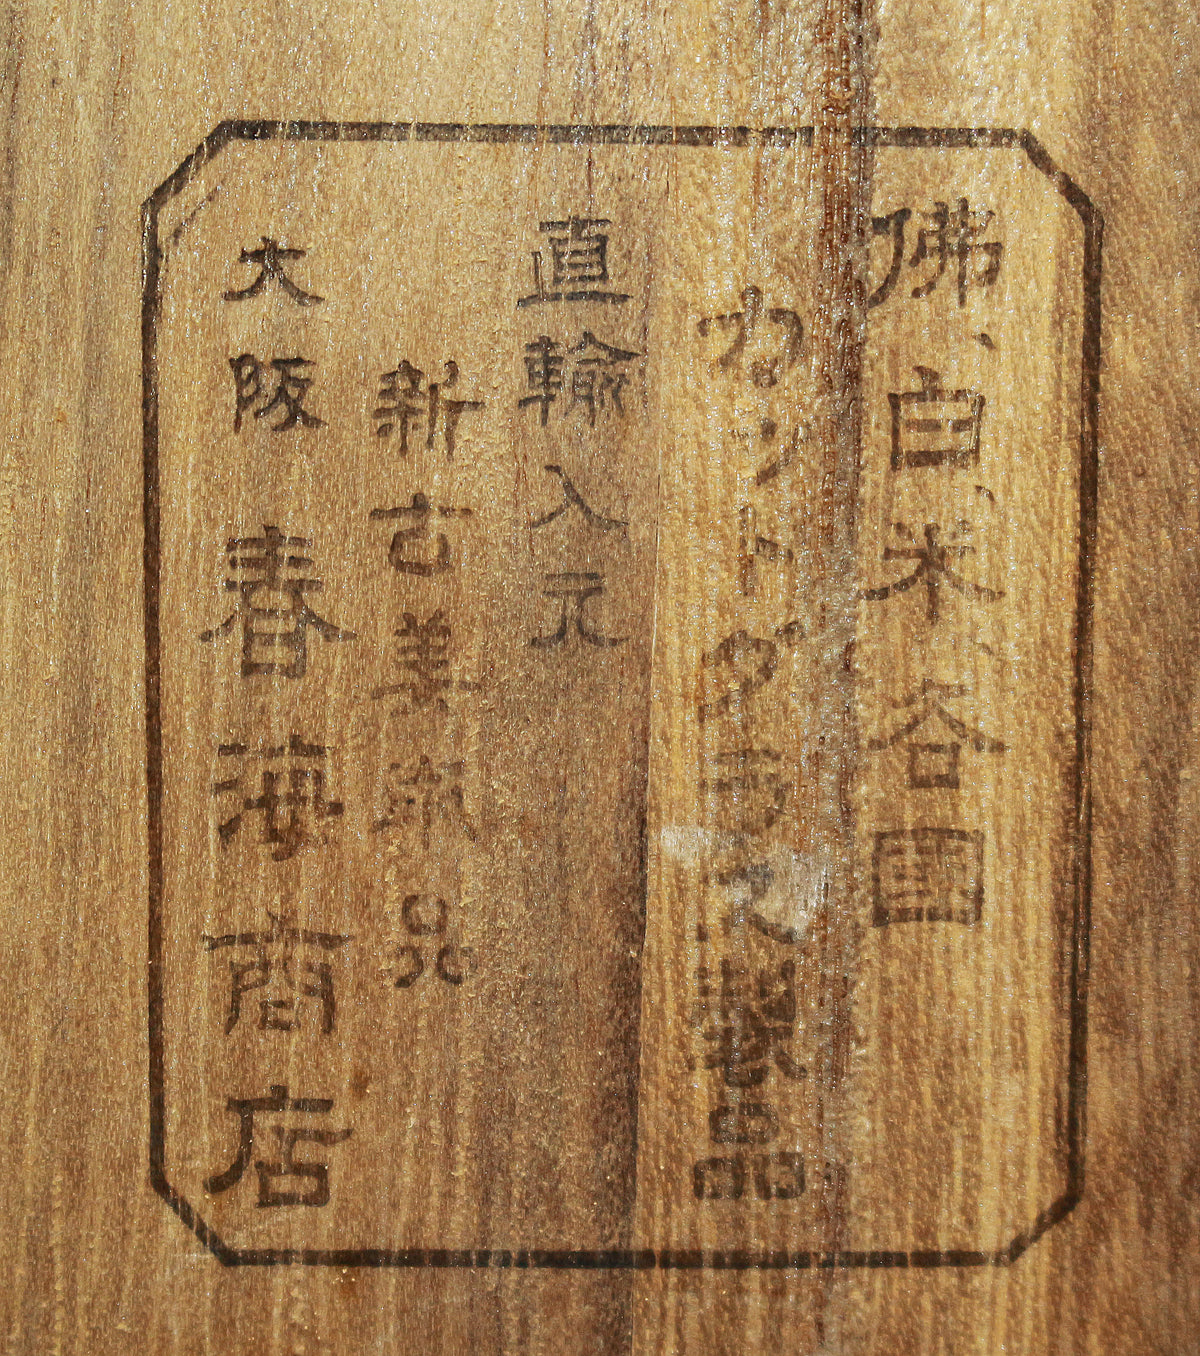 佛、白、米、谷國
カットグラス製品
直輸入元
新古美術品
大阪 春海商店